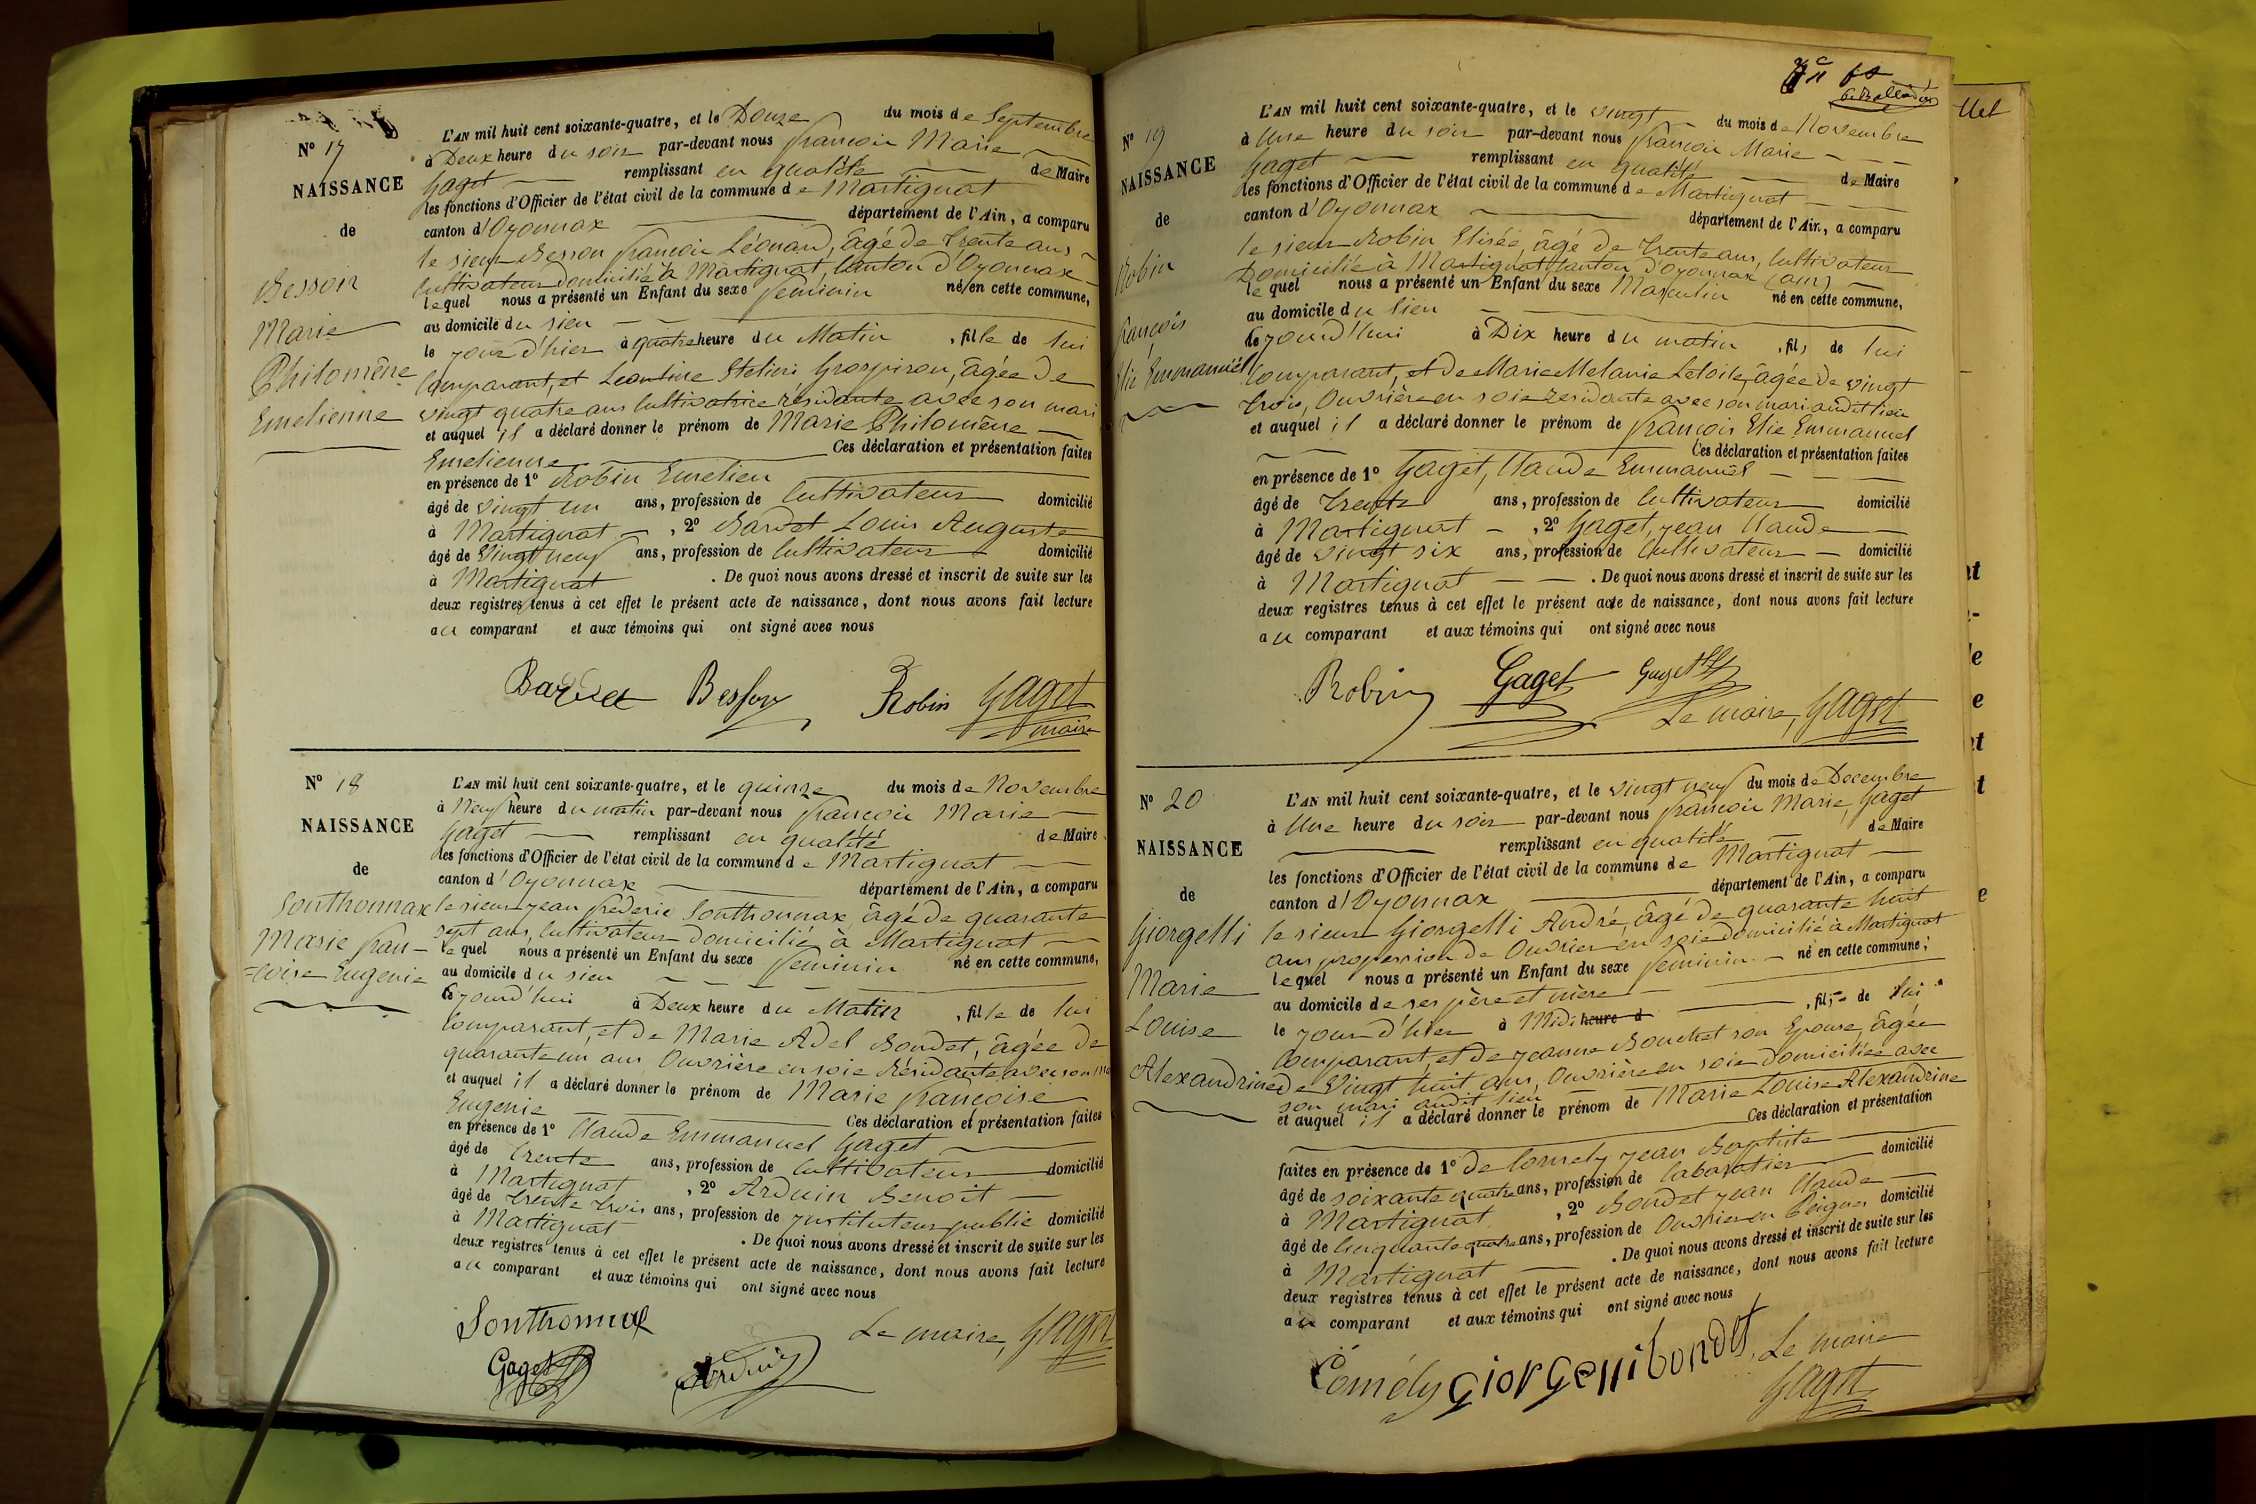 N° 17
NAISSANCE
de
Besson
Marie
Philomène
Emelienne
L'AN mil huit cent soixante-quatre, et le Douze du mois de Septembre
à Deux heure du soir par-devant nous françois Marie
Gaget remplissant en qualité de Maire
les fonctions d'Officier de l'état civil de la commune de Martignat
canton d'Oyonnax département de l'Ain, a comparu
le sieur Besson françois Léonard, âgé de trente ans
Cultivateur domicilié à Martignat, Canton d'Oyonnax
lequel nous a présenté un Enfant du sexe feminin né en cette commune,
au domicile du sien
le jour d'hier à quatre heure du Matin, fille de lui
Comparant, et Leontine Grospiron, âgée de
vingt quatre ans Cultivatrice résidante avec son mari
et auquel il a déclaré donner le prénom de Marie Philomène
Emelienne Ces déclaration et présentation faites
en présence de 1° Robin Emelien
âgé de vingt un ans, profession de Cultivateur domicilié
à Martignat, 2° Bardet Louis Auguste
âgé de Vingt neuf ans, profession de Cultivateur domicilié
à Martignat. De quoi nous avons dressé et inscrit de suite sur les
deux registres tenus à cet effet le présent acte de naissance, dont nous avons fait lecture
au comparant et aux témoins qui ont signé avec nous
Bardet Besson Robin Gaget
maire
N° 18
NAISSANCE
de
Sonthonnax
Marie fran-
=çoise Eugenie
L'AN mil huit cent soixante-quatre, et le quinze du mois de Novembre
à Neuf heure du matin par-devant nous françois Marie
Gaget remplissant en qualité de Maire
les fonctions d'Officier de l'état civil de la commune de Martignat
canton d'Oyonnax département de l'Ain, a comparu
le sieur jean frederic Sonthonnax âgé de quarante
sept ans, Cultivateur domicilié à Martignat
lequel nous a présenté un Enfant du sexe feminin né en cette commune,
au domicile du sien
Cejourd'hui à Deux heure du Matin, fille de lui
Comparant, et de Marie Adel Bondet, âgée de
quarante un ans Ouvrière en soie Résidante avec son
et auquel il a déclaré donner le prénom de Marie françoise
Eugenie Ces déclaration et présentation faites
en présence de 1° Claude Emmanuel Gaget
âgé de trente ans, profession de Cultivateur domicilié
à Martignat, 2° Arduin Benoit
âgé de trente trois ans, profession de jnstituteur public domicilié
à Martignat. De quoi nous avons dressé et inscrit de suite sur les
deux registres tenus à cet effet le présent acte de naissance, dont nous avons fait lecture
au comparant et aux témoins qui ont signé avec nous
Sonthonnax Le maire, Gaget
Gaget Arduin
N° 19
NAISSANCE
de
Robin
françois
Elie Emmanuel
L'AN mil huit cent soixante-quatre, et le vingt du mois de Novembre
à Une heure du soir par-devant nous françois Marie
Gaget remplissant en qualité de Maire
les fonctions d'Officier de l'état civil de la commune de Martignat
canton d'Oyonnax département de l'Ain, a comparu
le sieur Robin Elisée, âgé de trente ans, Cultivateur
Domicilié à Martignat Canton d'Oyonnax (ain)
lequel nous a présenté un Enfant du sexe Masculin né en cette commune,
au domicile du sien
Cejourd'hui à Dix heure du matin, fils de lui
Comparant, et de Marie Melanie Letoile, âgée de vingt
trois, Ouvrière en soie residante avec son mari audit lieu
et auquel il a déclaré donner le prénom de françois Elie Emmanuel
Ces déclaration et présentation faites
en présence de 1° Gaget, Claude Emmanuel
âgé de Trente ans, profession de Cultivateur domicilié
à Martignat, 2° Gaget, jean Claude
âgé de vingt six ans, profession de Cultivateur domicilié
à Martignat. De quoi nous avons dressé et inscrit de suite sur les
deux registres tenus à cet effet le présent acte de naissance, dont nous avons fait lecture
au comparant et aux témoins qui ont signé avec nous
Robin Gaget Gaget
Le maire, Gaget
N° 20
NAISSANCE
de
Giorgelli
Marie
Louise
Alexandrine
L'AN mil huit cent soixante-quatre, et le vingt neuf du mois de Decembre
à Une heure du soir par-devant nous françois Marie Gaget
remplissant en qualité de Maire
les fonctions d'Officier de l'état civil de la commune de Martignat
canton d'Oyonnax département de l'Ain, a comparu
le sieur Giorgelli André, âgé de quarante huit
ans profession de Ouvrier en soie domicilié à Martignat
lequel nous a présenté un Enfant du sexe feminin né en cette commune,
au domicile de ses père et mère
le jour d'hier à Midi heure d, fil de lui
Comparant, et de jeanne Bouchet son Epouse, âgée
de Vingt huit ans, Ouvrière en soie domiciliée avec
son mari audit lieu
et auquel il a déclaré donner le prénom de Marie Louise Alexandrine
Ces déclaration et présentation
faites en présence de 1° de Comely jean Baptiste
âgé de soixante quatre ans, profession de Cabaretier domicilié
à Martignat, 2° Bondet jean Claude
âgé de Cinquante quatre ans, profession de Ouvrier en Peignes domicilié
à Martignat. De quoi nous avons dressé et inscrit de suite sur les
deux registres tenus à cet effet le présent acte de naissance, dont nous avons fait lecture
au comparant et aux témoins qui ont signé avec nous
Comély Giorgelli bondet Le maire
Gaget